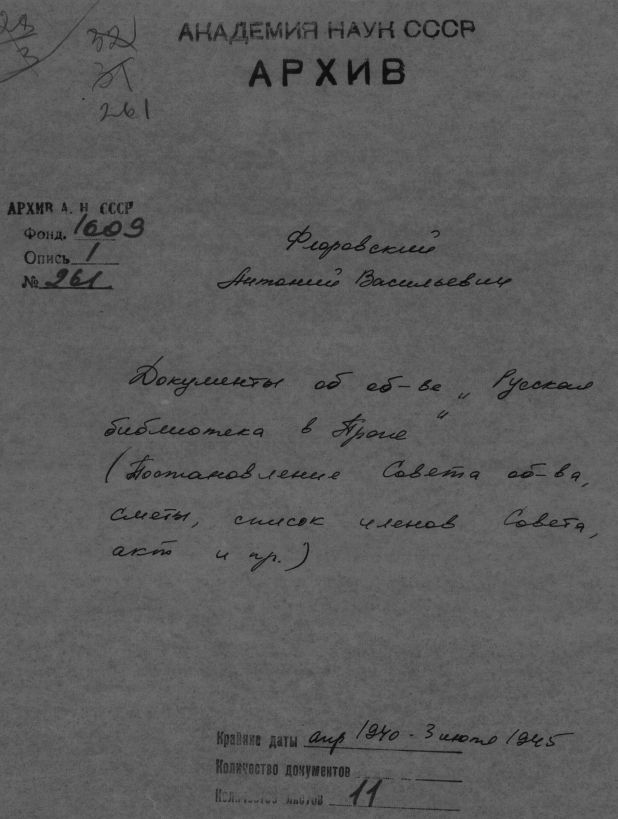 28
3
32
31
261
АКАДЕМИЯ НАУК СССР
АРХИВ
АРХИВ А. Н. СССР
Фонд. 1609
Опись 1
№ 261
Флоровский
Антоний Васильевич
Документы об об-ве „Русская
библиотека в Праге"
(Постановление Совета об-ва,
сметы, список членов Совета,
акт и пр.)
Крайние даты апр 1940 - 3 июля 1945
Количество документов
Количество листов 11